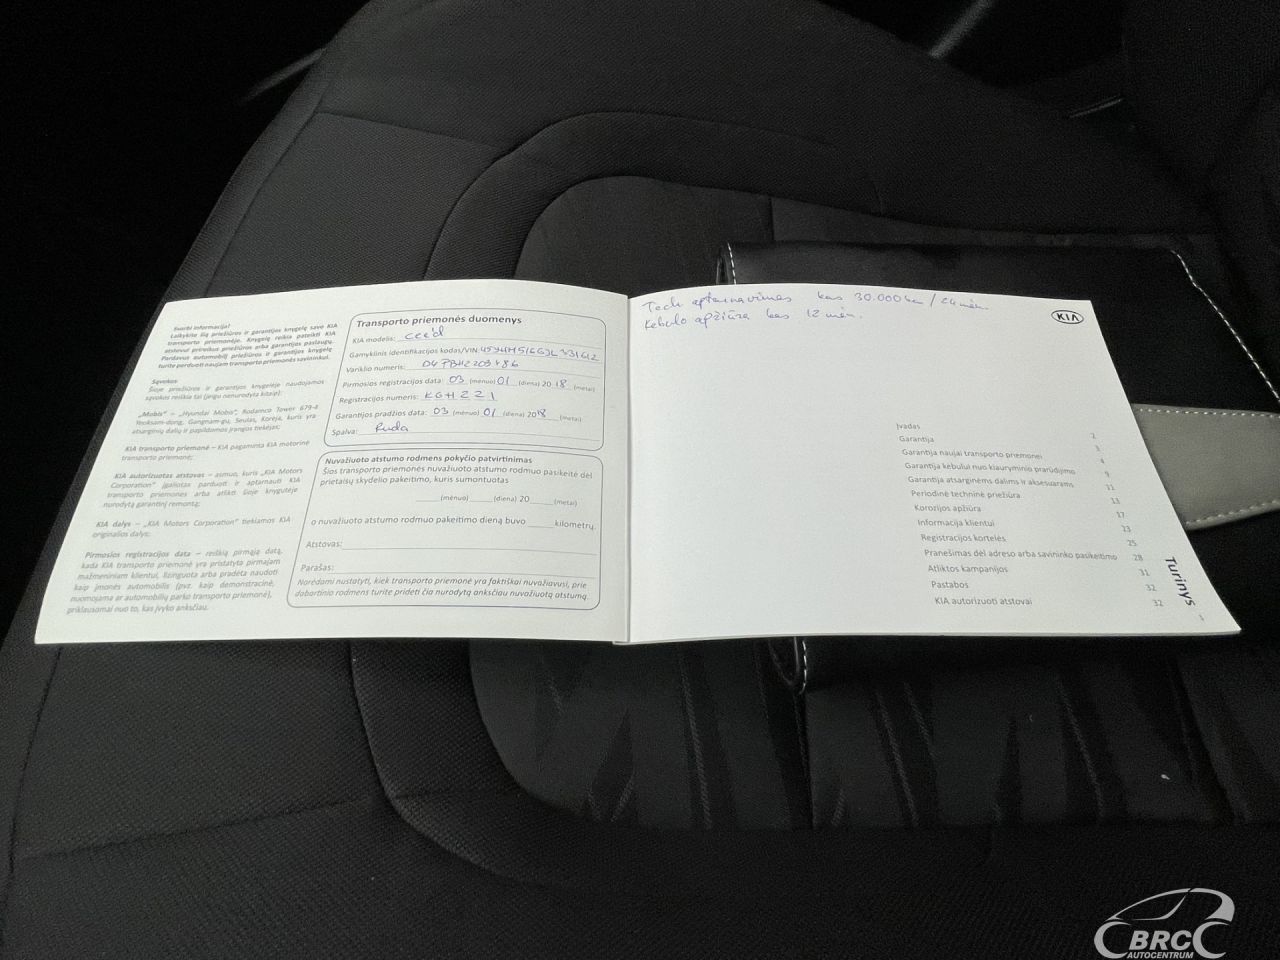 Svarbi informacija!
Laikykite šią priežiūros ir garantijos knygelę savo KIA
transporto priemonėje. Knygelę reikia pateikti KIA
atstovui prireikus priežiūros arba garantijos paslaugų.
Pardavus automobilį priežiūros ir garantijos knygelę
turite perduoti naujam transporto priemonės savininkui.
Sąvokos
Šioje priežiūros ir garantijos knygelėje naudojamos
sąvokos reiškia tai (jeigu nenurodyta kitaip):
„Mobis“ – „Hyundai Mobis“, Rodamco Tower 679-4
Yeoksam-dong, Gangnam-gu, Seulas, Korėja, kuris yra
atsarginių dalių ir papildomos įrangos tiekėjas;
KIA transporto priemonė – KIA pagaminta KIA motorinė
transporto priemonė;
KIA autorizuotas atstovas – asmuo, kuris „KIA Motors
Corporation“ įgaliotas parduoti ir aptarnauti KIA
transporto priemones arba atlikti šioje knygutėje
nurodytą garantinį remontą;
KIA dalys – „KIA Motors Corporation“ tiekiamos KIA
originalios dalys;
Pirmosios registracijos data – reiškia pirmąją datą,
kada KIA transporto priemonė yra pristatyta pirmajam
mažmeniniam klientui, lizinguota arba pradėta naudoti
kaip įmonės automobilis (pvz. kaip demonstracinė,
nuomojama ar automobilių parko transporto priemonė),
priklausomai nuo to, kas įvyko anksčiau.
Transporto priemonės duomenys
KIA modelis: cee'd
Gamyklinis identifikacijos kodas/VIN:
Variklio numeris:
Pirmosios registracijos data: 03 (mėnuo) 01 (diena) 20 18 (metai)
Registracijos numeris: KGH 221
Garantijos pradžios data: 03 (mėnuo) 01 (diena) 2018 (metai)
Spalva: Ruda
Nuvažiuoto atstumo rodmens pokyčio patvirtinimas
Šios transporto priemonės nuvažiuoto atstumo rodmuo pasikeitė dėl
prietaisų skydelio pakeitimo, kuris sumontuotas
(mėnuo) (diena) 20 (metai)
o nuvažiuoto atstumo rodmuo pakeitimo dieną buvo kilometrų.
Atstovas:
Parašas:
Norėdami nustatyti, kiek transporto priemonė yra faktiškai nuvažiavusi, prie
dabartinio rodmens turite pridėti čia nurodytą anksčiau nuvažiuotą atstumą.
Tech aptarnavimas kas 30.000 km / 24 mėn.
Kėbulo apžiūra kas 12 mėn.
KIA
Įvadas 2
Garantija 3
Garantija naujai transporto priemonei 4
Garantija kėbului nuo kiauryminio prarūdijimo 9
Garantija atsarginėms dalims ir aksesuarams 11
Periodinė techninė priežiūra 13
Korozijos apžiūra 17
Informacija klientui 23
Registracijos kortelės 25
Pranešimas dėl adreso arba savininko pasikeitimo 28
Atliktos kampanijos 31
Pastabos 32
KIA autorizuoti atstovai 32
Turinys
1
BRC
AUTOCENTRUM